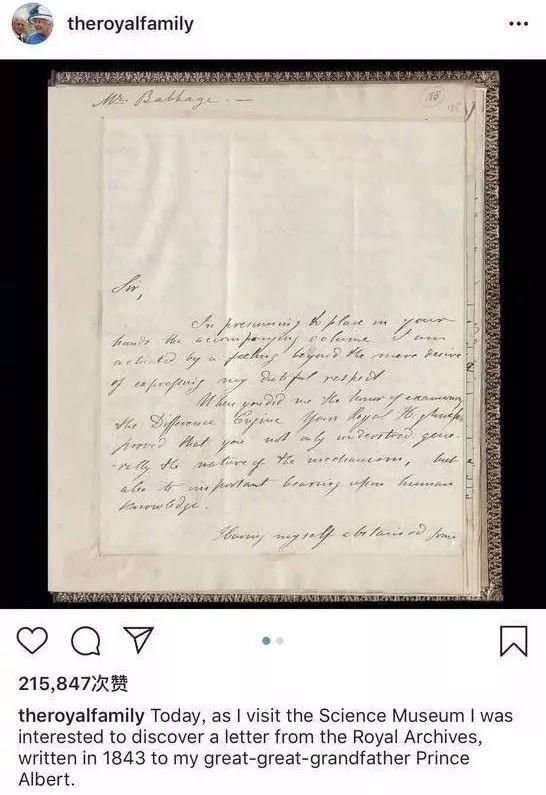 theroyalfamily
Mr. Babbage. —
Sir,
In presuming to place in your
hands the accompanying volume I am
actuated by a feeling beyond the mere desire
of expressing my dutiful respect
When you did me the honor of examining
the Difference Engine Your Royal Highness
proved that you not only understood gene-
rally the nature of the mechanism, but
also its important bearing upon human
knowledge.
Having myself abstained from
215,847次赞
theroyalfamily Today, as I visit the Science Museum I was
interested to discover a letter from the Royal Archives,
written in 1843 to my great-great-grandfather Prince
Albert.